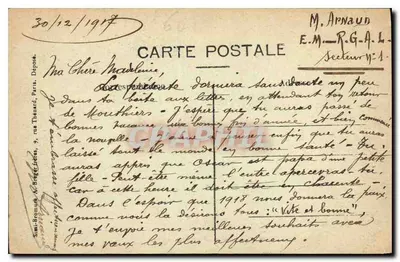 30/12/1917
M. Arnaud
E.M.—R.G.A.L.
Secteur N°1.
CARTE POSTALE
Ma Chère Madeleine,
La présente dormira sans doute un peu
dans ta boîte aux lettres, en attendant ton retour
de Mouthiers. J'espère que tu auras passé de
bonnes vacances, une bonne fin d'année et bien commencé
la nouvelle enfin que tu auras
laissé tout le monde en bonne santé - Tu
auras appris que Oscar est papa d'une petite
fille - Peut-être même l'auras
car à cette heure il doit être en Charente.
Dans l'espoir que 1918 nous donnera la paix
comme nous la désirons tous: "Vite et bonne",
je t'envoie mes meilleurs souhaits avec
mes vœux les plus affectueux.
9, rue Thénard, Paris. Déposé.